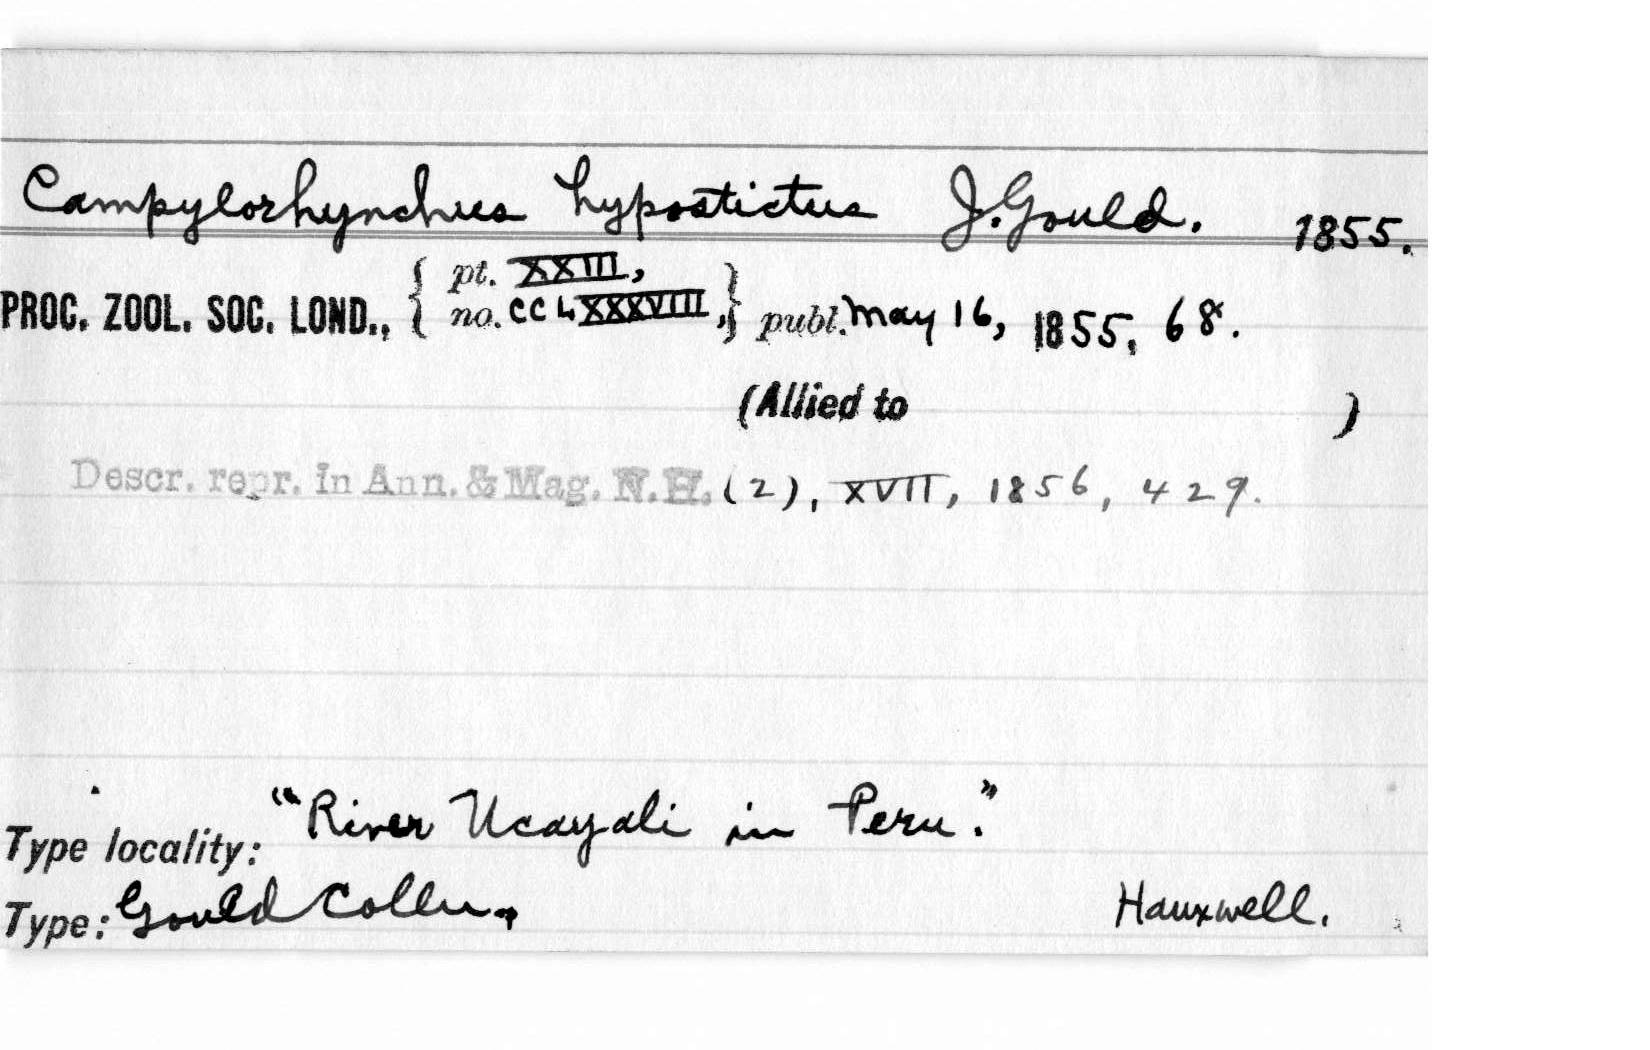 Campylorhynchus hypostictus J. Gould. 1855.
PROC. ZOOL. SOC. LOND., { pt. XXIII, no. CCLXXXVIII, } publ. May 16, 1855, 68.
(Allied to )
Descr. repr. in Ann. & Mag. N.H. (2), XVII, 1856, 429.
Type locality: "River Ucayali in Peru."
Type: Gould Colln., Hauxwell.